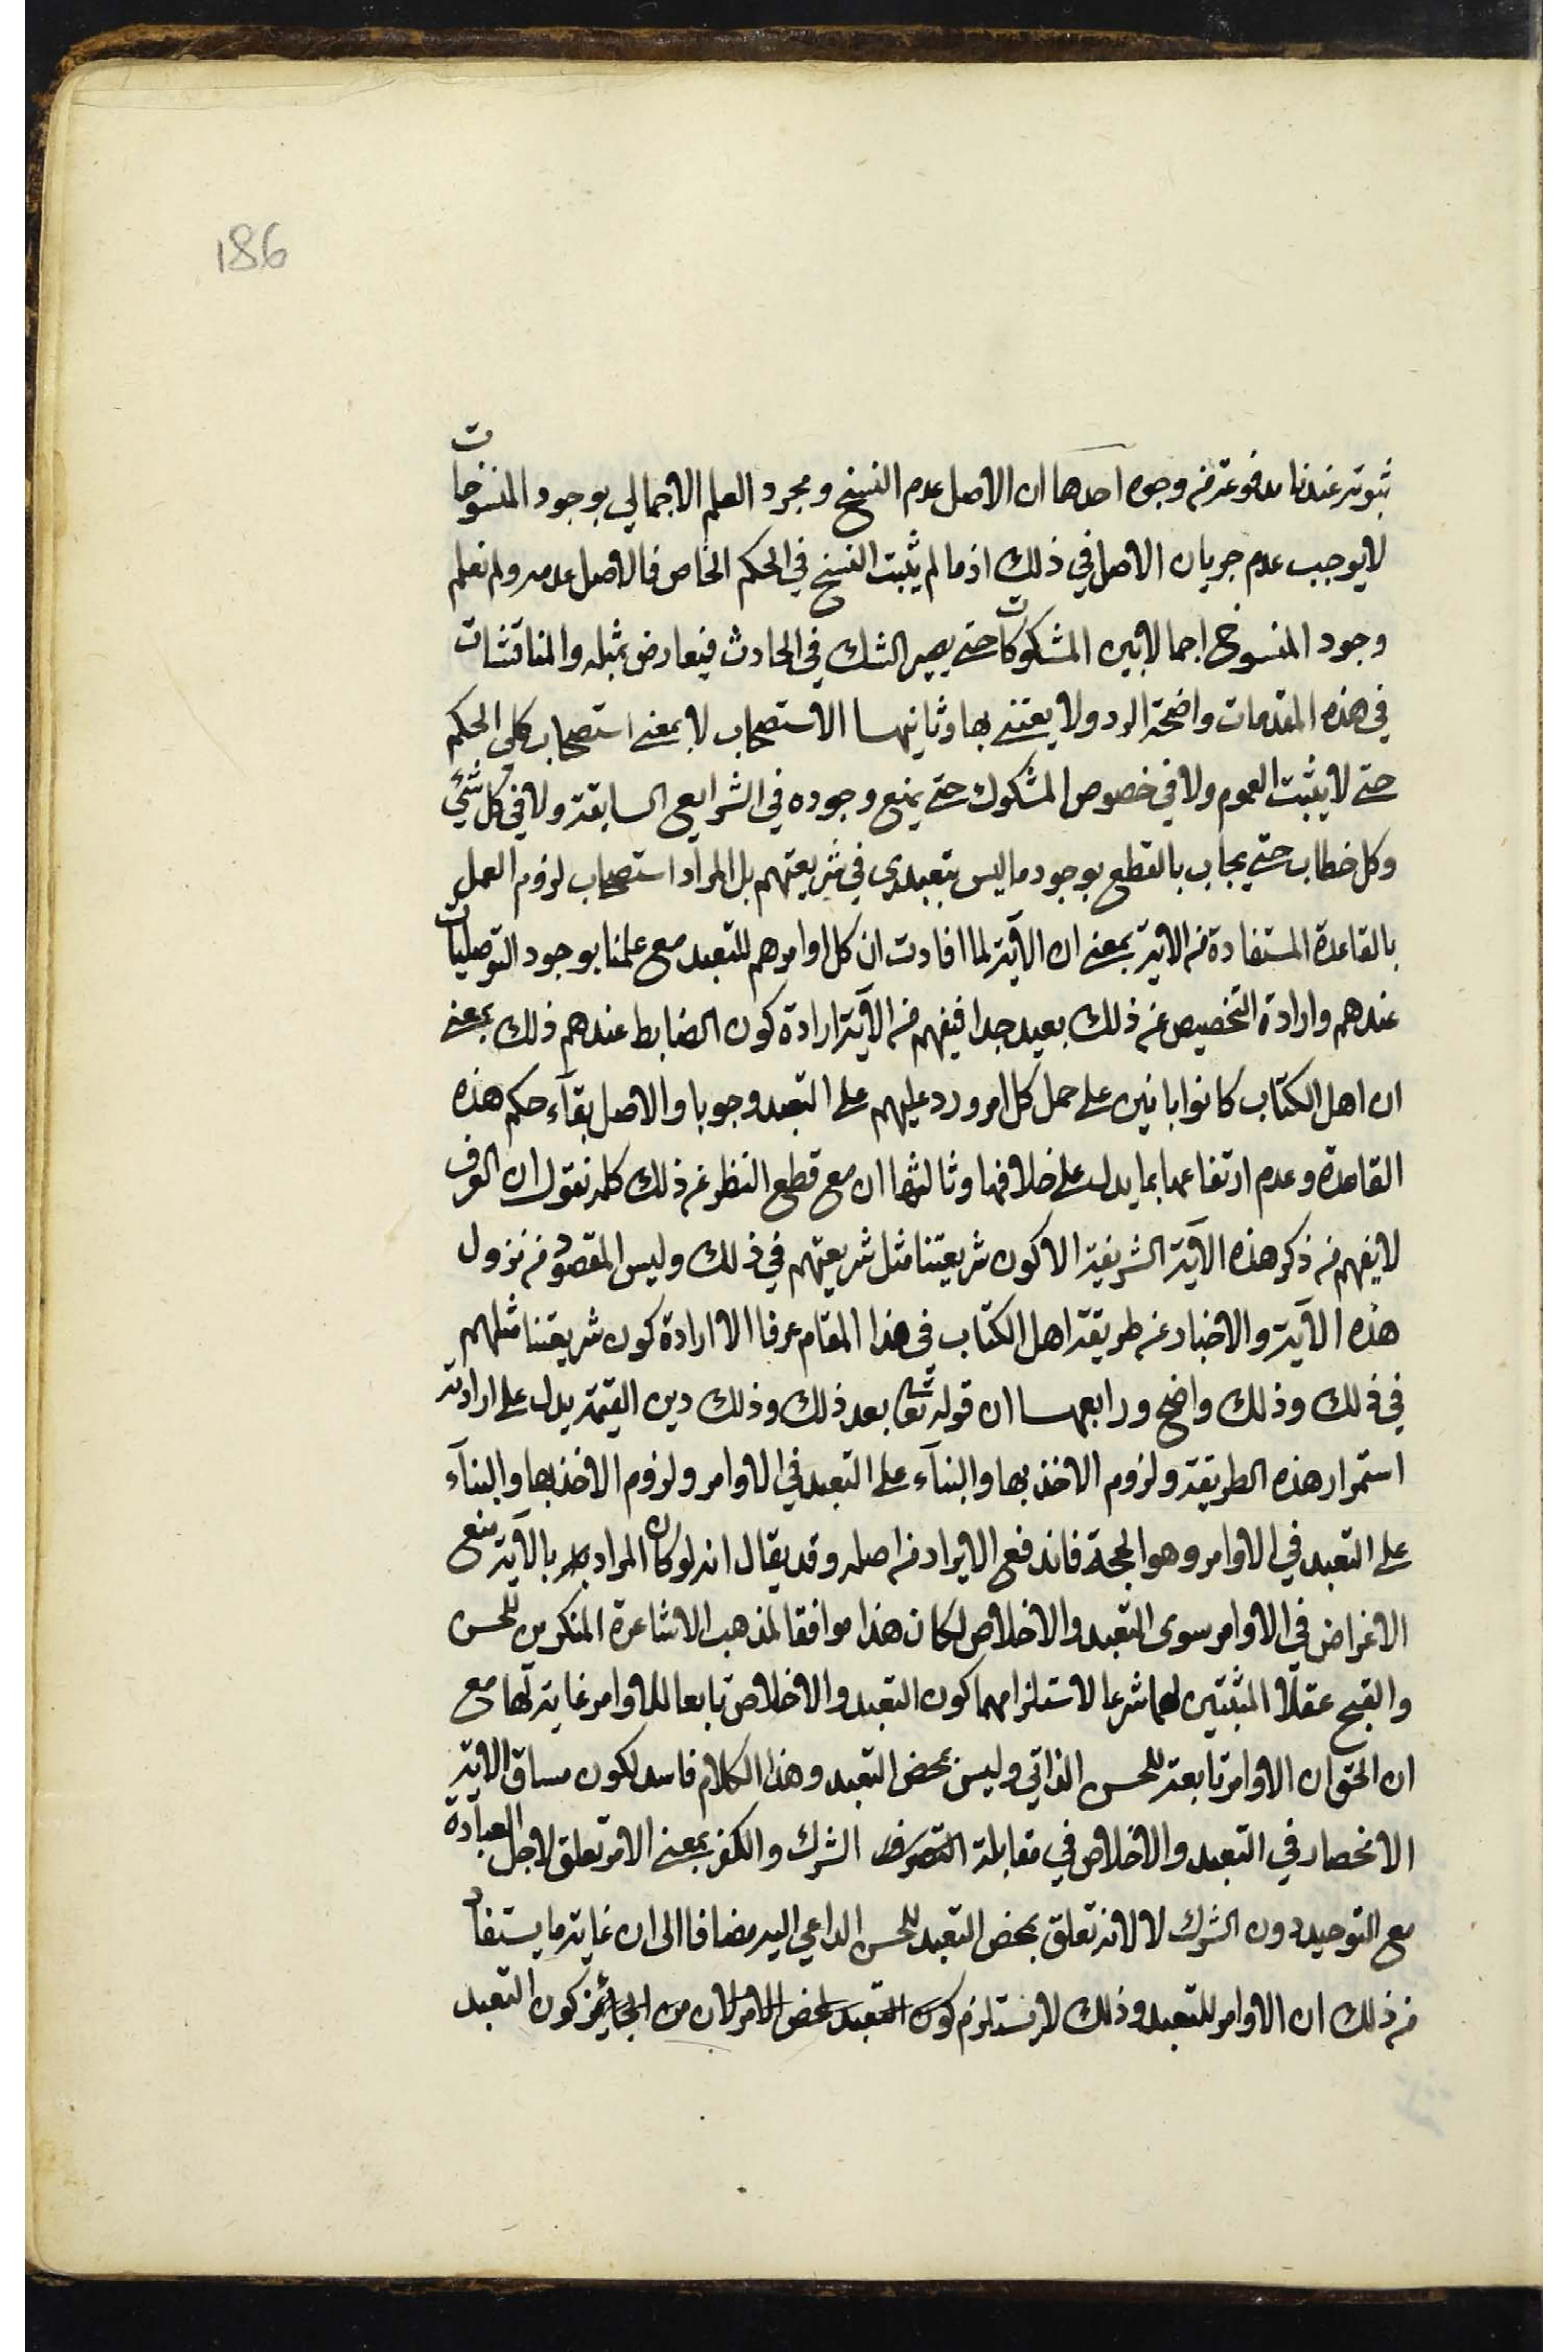 186
ثبوته عندنا مدفوعة من وجوه احدها ان الاصل عدم النسخ ومجرد العلم الاجمالي بوجود المنسوخات
لا يوجب عدم جريان الاصل في ذلك اذ ما لم يثبت النسخ في الحكم الخاص فالاصل عدمه ولم نعلم
وجود المنسوخ اجمالا بين المشكوكات حتى يصير الشك في الحادث فيعارض بمثله والمناقشات
في هذه المقدمات واضحة الرد ولا يعتنى بها وثانيها الاستصحاب لا بمعنى استصحاب كلي الحكم
حتى لا يثبت العموم ولا في خصوص المشكوك حتى يمنع وجوده في الشرايع السابقة ولا في كل شئ
وكل خطاب حتى يجاب بالقطع بوجود ما ليس بتعبدي في شريعتهم بل المراد استصحاب لزوم العمل
بالقاعدة المستفادة من الاية بمعنى ان الآية لما افادت ان كل اوامرهم للتعبد مع علمنا بوجود التوصليات
عندهم وارادة التخصيص عن ذلك بعيد جدا فيفهم من الآية ارادة كون الضابط عندهم ذلك بمعنى
ان اهل الكتاب كانوا بانين على حمل كل امر ورد عليهم على التعبد وجوبا والاصل بقآء حكم هذه
القاعدة وعدم ارتفاعها بما يدل على خلافها وثالثها ان مع قطع النظر عن ذلك كله نقول ان العرف
لا يفهم من ذكر هذه الآية الشريفة الا كون شريعتنا مثل شريعتهم في ذلك وليس المقصود من نزول
هذه الآية والاخبار عن طريقة اهل الكتاب في هذا المقام عرفا الا ارادة كون شريعتنا مثلهم
في ذلك وذلك واضح ورابعها ان قوله تعا بعد ذلك وذلك دين القيمة يدل على ارادته
استمرار هذه الطريقة ولزوم الاخذ بها والبنآء على التعبد في الاوامر ولزوم الاخذ بها والبنآء
على التعبد في الاوامر وهو الحجة فاندفع الايراد من اصله وقد يقال انه لو كان المراد بالآية منع
الاغراض في الاوامر سوى التعبد والاخلاص لكان هذا موافقا لمذهب الاشاعرة المنكرين للحسن
والقبح عقلا المثبتين لهما شرعا لاستلزامهما كون التعبد والاخلاص تابعا للاوامر غاية لها مع
ان الحق ان الاوامر تابعة للحسن الذاتي وليس بمحض التعبد وهذا الكلام فاسد لكون مساق الاية
الانحصار في التعبد والاخلاص في مقابلة الشرك والكفر بمعنى الامر تعلق لاجل العبادة
مع التوحيد دون الشرك لا لانه تعلق بمحض التعبد للحسن الداعي اليه مضافا الى ان غاية ما يستفاد
من ذلك ان الاوامر للتعبد وذلك لا يستلزم كون التعبد لمحض الامر لان من الجائز كون التعبد